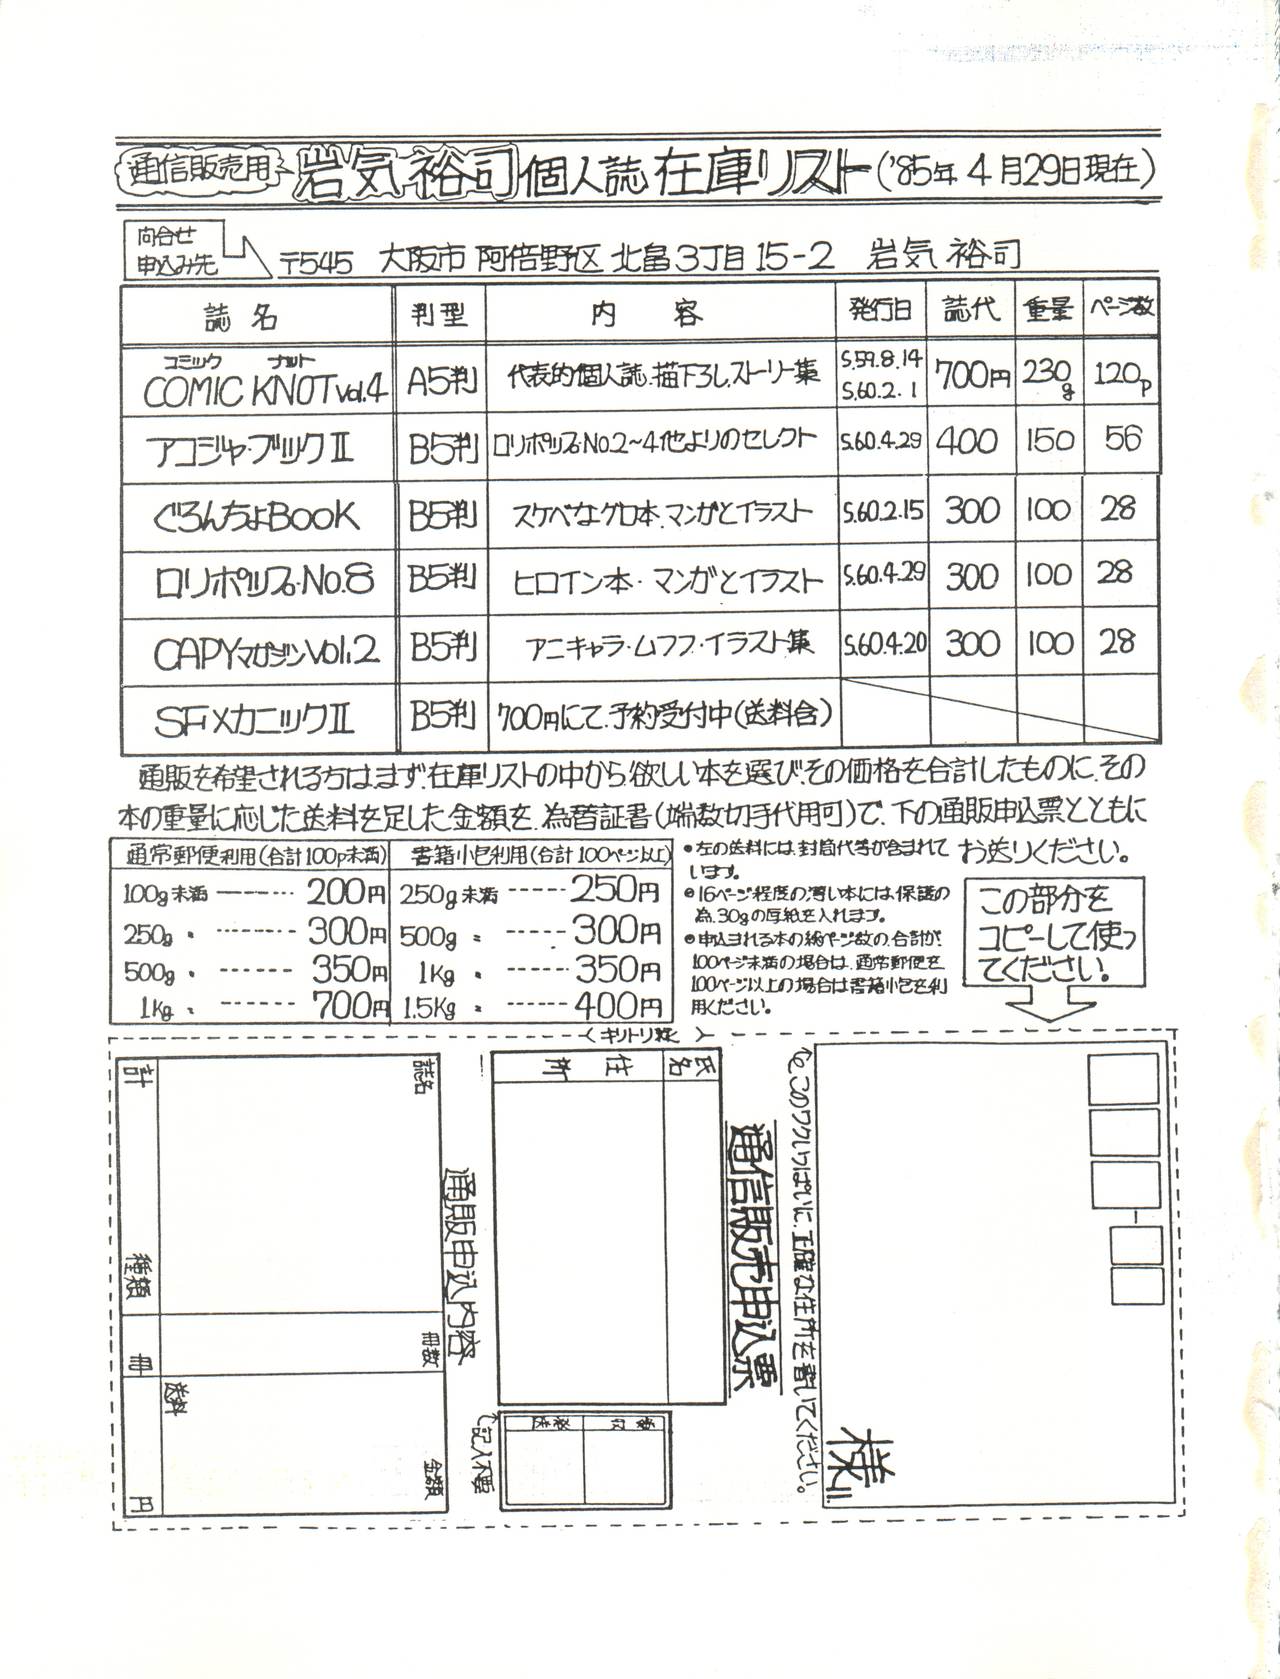 通信販売用 岩気裕司個人誌在庫リスト('85年4月29日現在)
問合せ
申込み先
〒545 大阪市阿倍野区北畠3丁目15-2 岩気裕司
誌名 判型 内容 発行日 誌代 重量 ページ数
コミック ナット
COMIC KNOT vol.4 A5判 代表的個人誌.描下ろし.ストーリー集 S.59.8.14 S.60.2.1 700円 230g 120p
アコジャ・ブックⅡ B5判 ロリポップ.No.2〜4他よりのセレクト S.60.4.29 400 150 56
ぐろんちょBOOK B5判 スケベなグロ本.マンガとイラスト S.60.2.15 300 100 28
ロリポップ・No.8 B5判 ヒロイン本・マンガとイラスト S.60.4.29 300 100 28
CAPYマガジンVol.2 B5判 アニキャラ・ムフフ・イラスト集 S.60.4.20 300 100 28
SFメカニックⅡ B5判 700円にて.予約受付中(送料含)
通販を希望される方はまず.在庫リストの中から.欲しい本を選び.その価格を合計したものに.その
本の重量に応じた送料を足した金額を.為替証書(端数切手代用可)で.下の通販申込票とともに
お送りください。
通常郵便利用(合計100p未満)
100g未満 ------- 200円
250g 〃 ------- 300円
500g 〃 ------- 350円
1Kg 〃 ------- 700円
書籍小包利用(合計100ページ以上)
250g未満 ------ 250円
500g 〃 ------ 300円
1Kg 〃 ------ 350円
1.5Kg 〃 ------ 400円
●左の送料には.封筒代等が含まれて
います。
●16ページ程度の薄い本には.保護の
為.30gの厚紙を入れます。
●申込まれる本の総ページ数の.合計が.
100ページ未満の場合は.通常郵便を
100ページ以上の場合は書籍小包を利
用ください。
この部分を
コピーして使っ
てください!
キリトリ線
このワクいっぱいに.正確な住所を書いてください。
様
通信販売申込票
氏名
住所
記入不要
通販申込内容
誌名
冊数
金額
送料
計
種類
冊
円